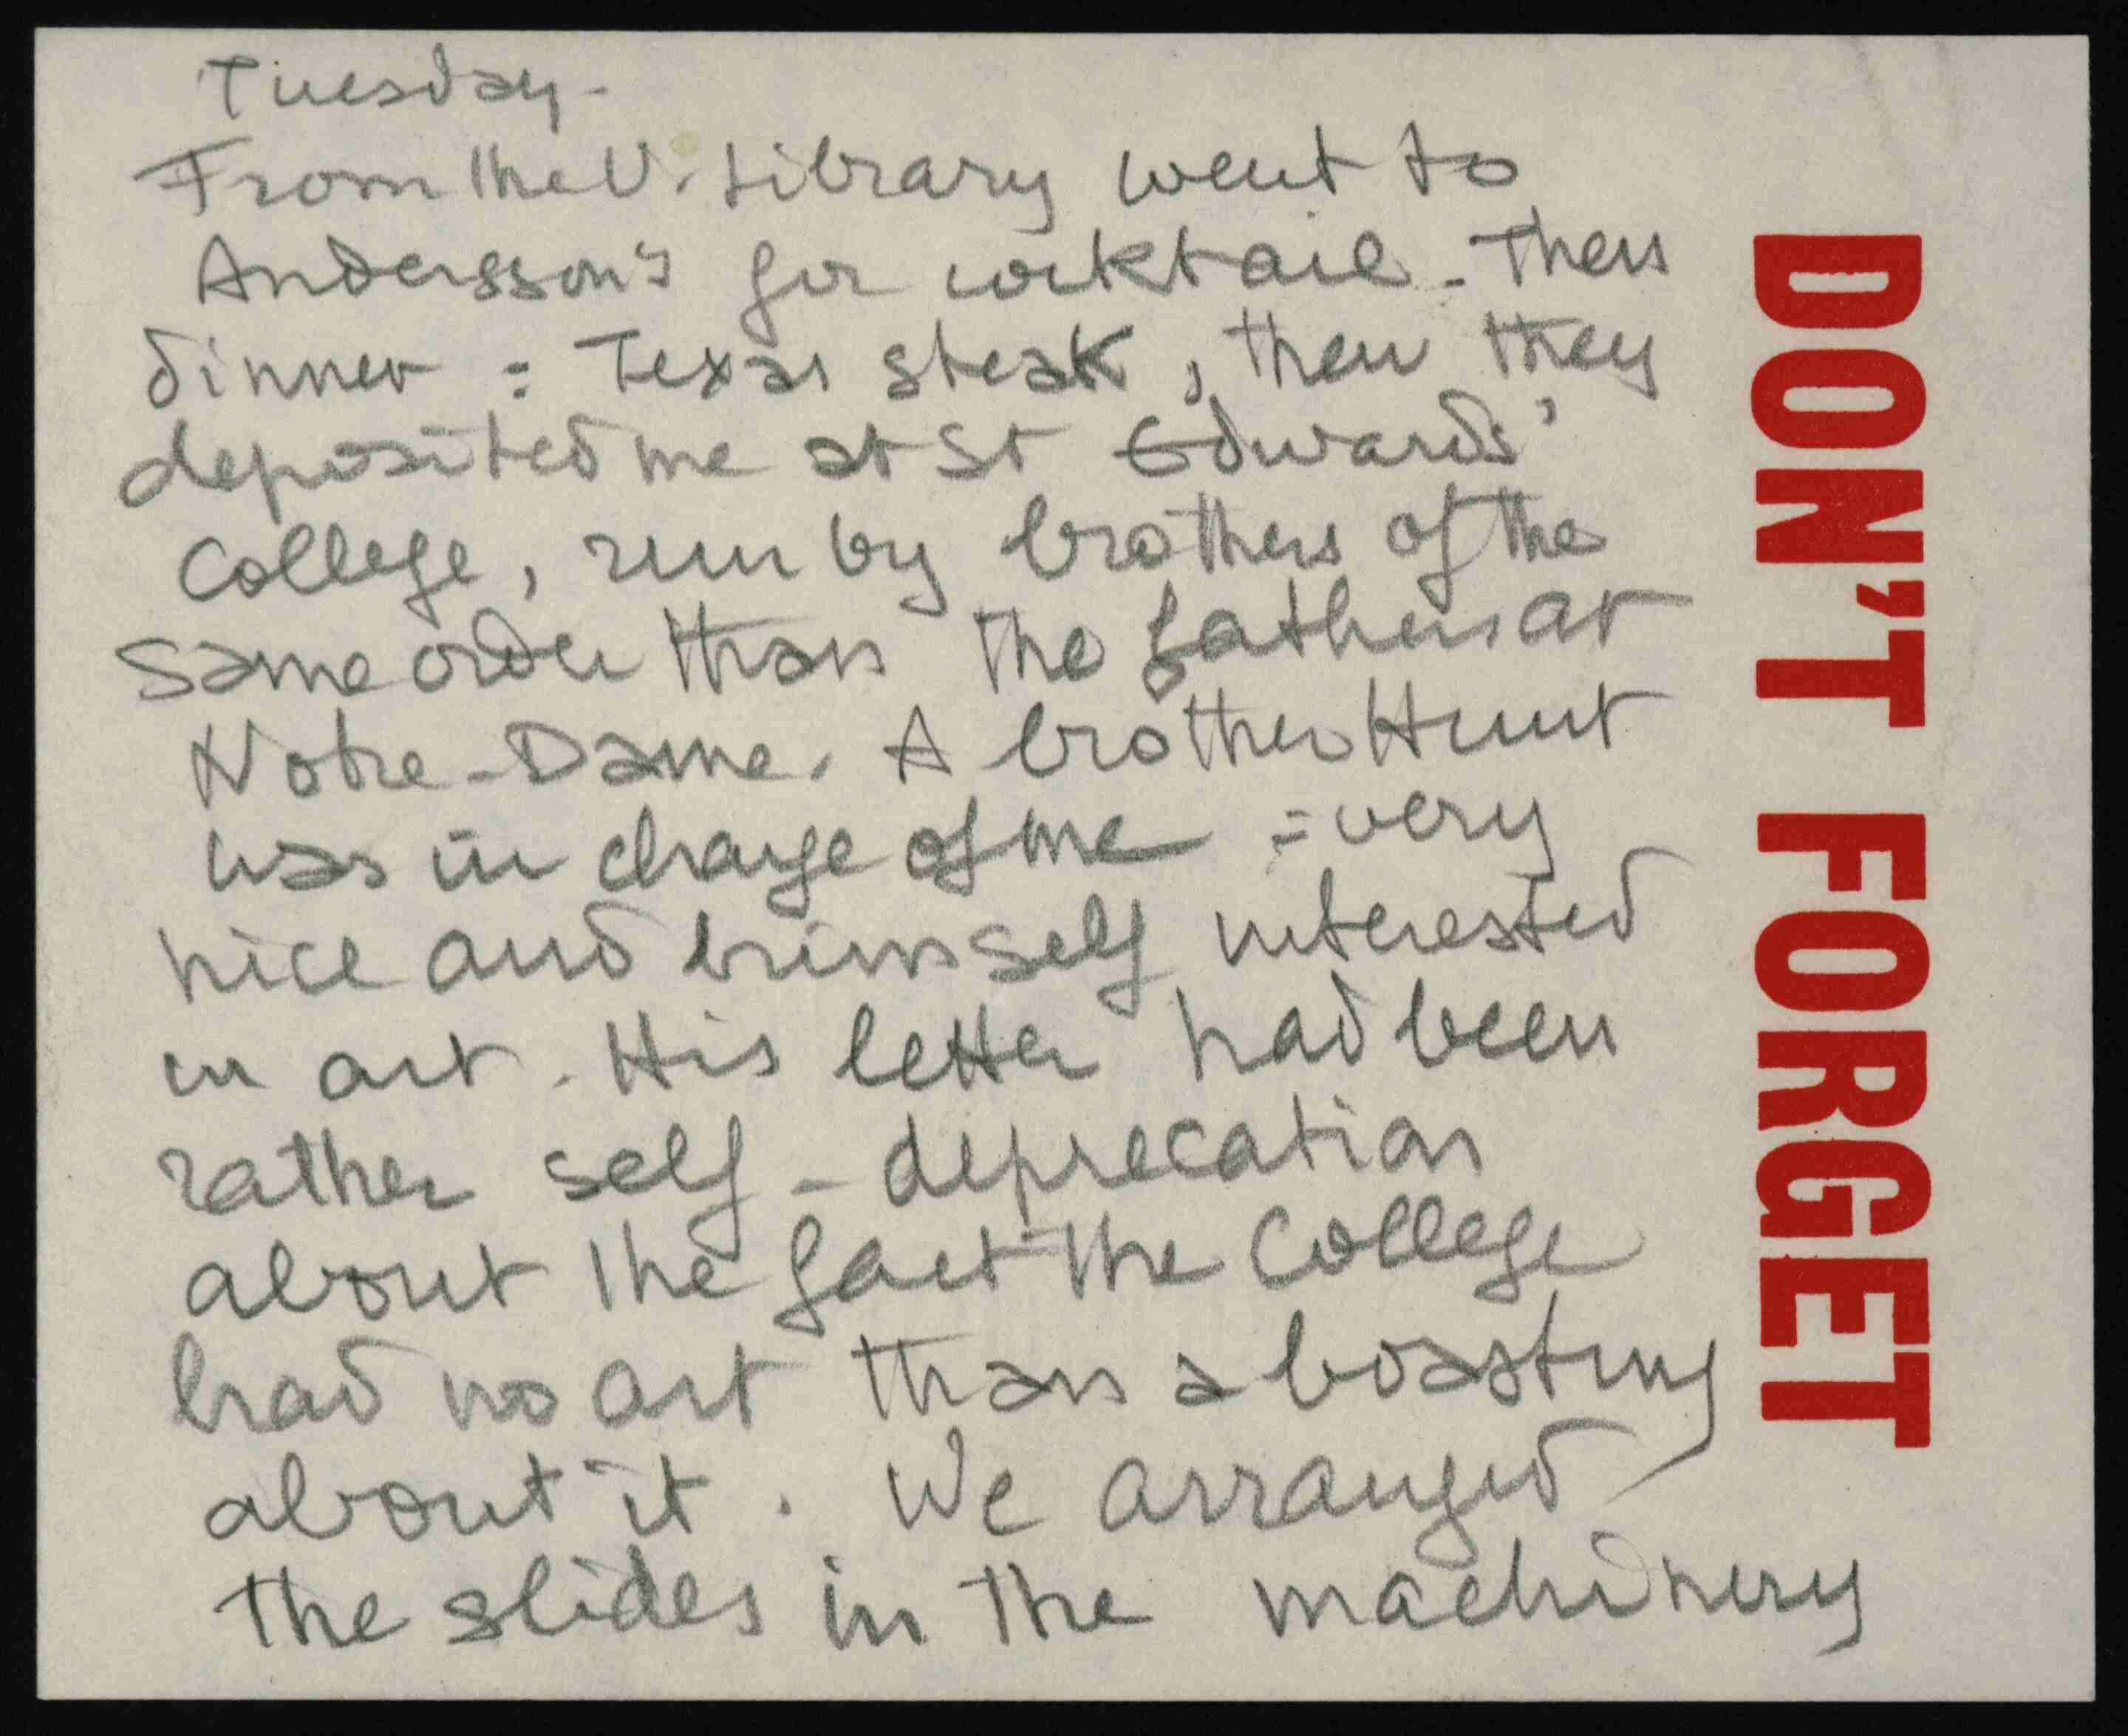 Tuesday-
From the U. Library went to
Andersson's for cocktail - Then
dinner : Texas steak, then they
deposited me at St Edwards'
College, run by brothers of the
same order than the fathers at
Notre-Dame. A brother Hunt
was in charge of me : very
nice and himself interested
in art. His letter had been
rather self-deprecation
about the fact the College
had no art than a boasting
about it. We arranged
the slides in the machinery
DON'T FORGET